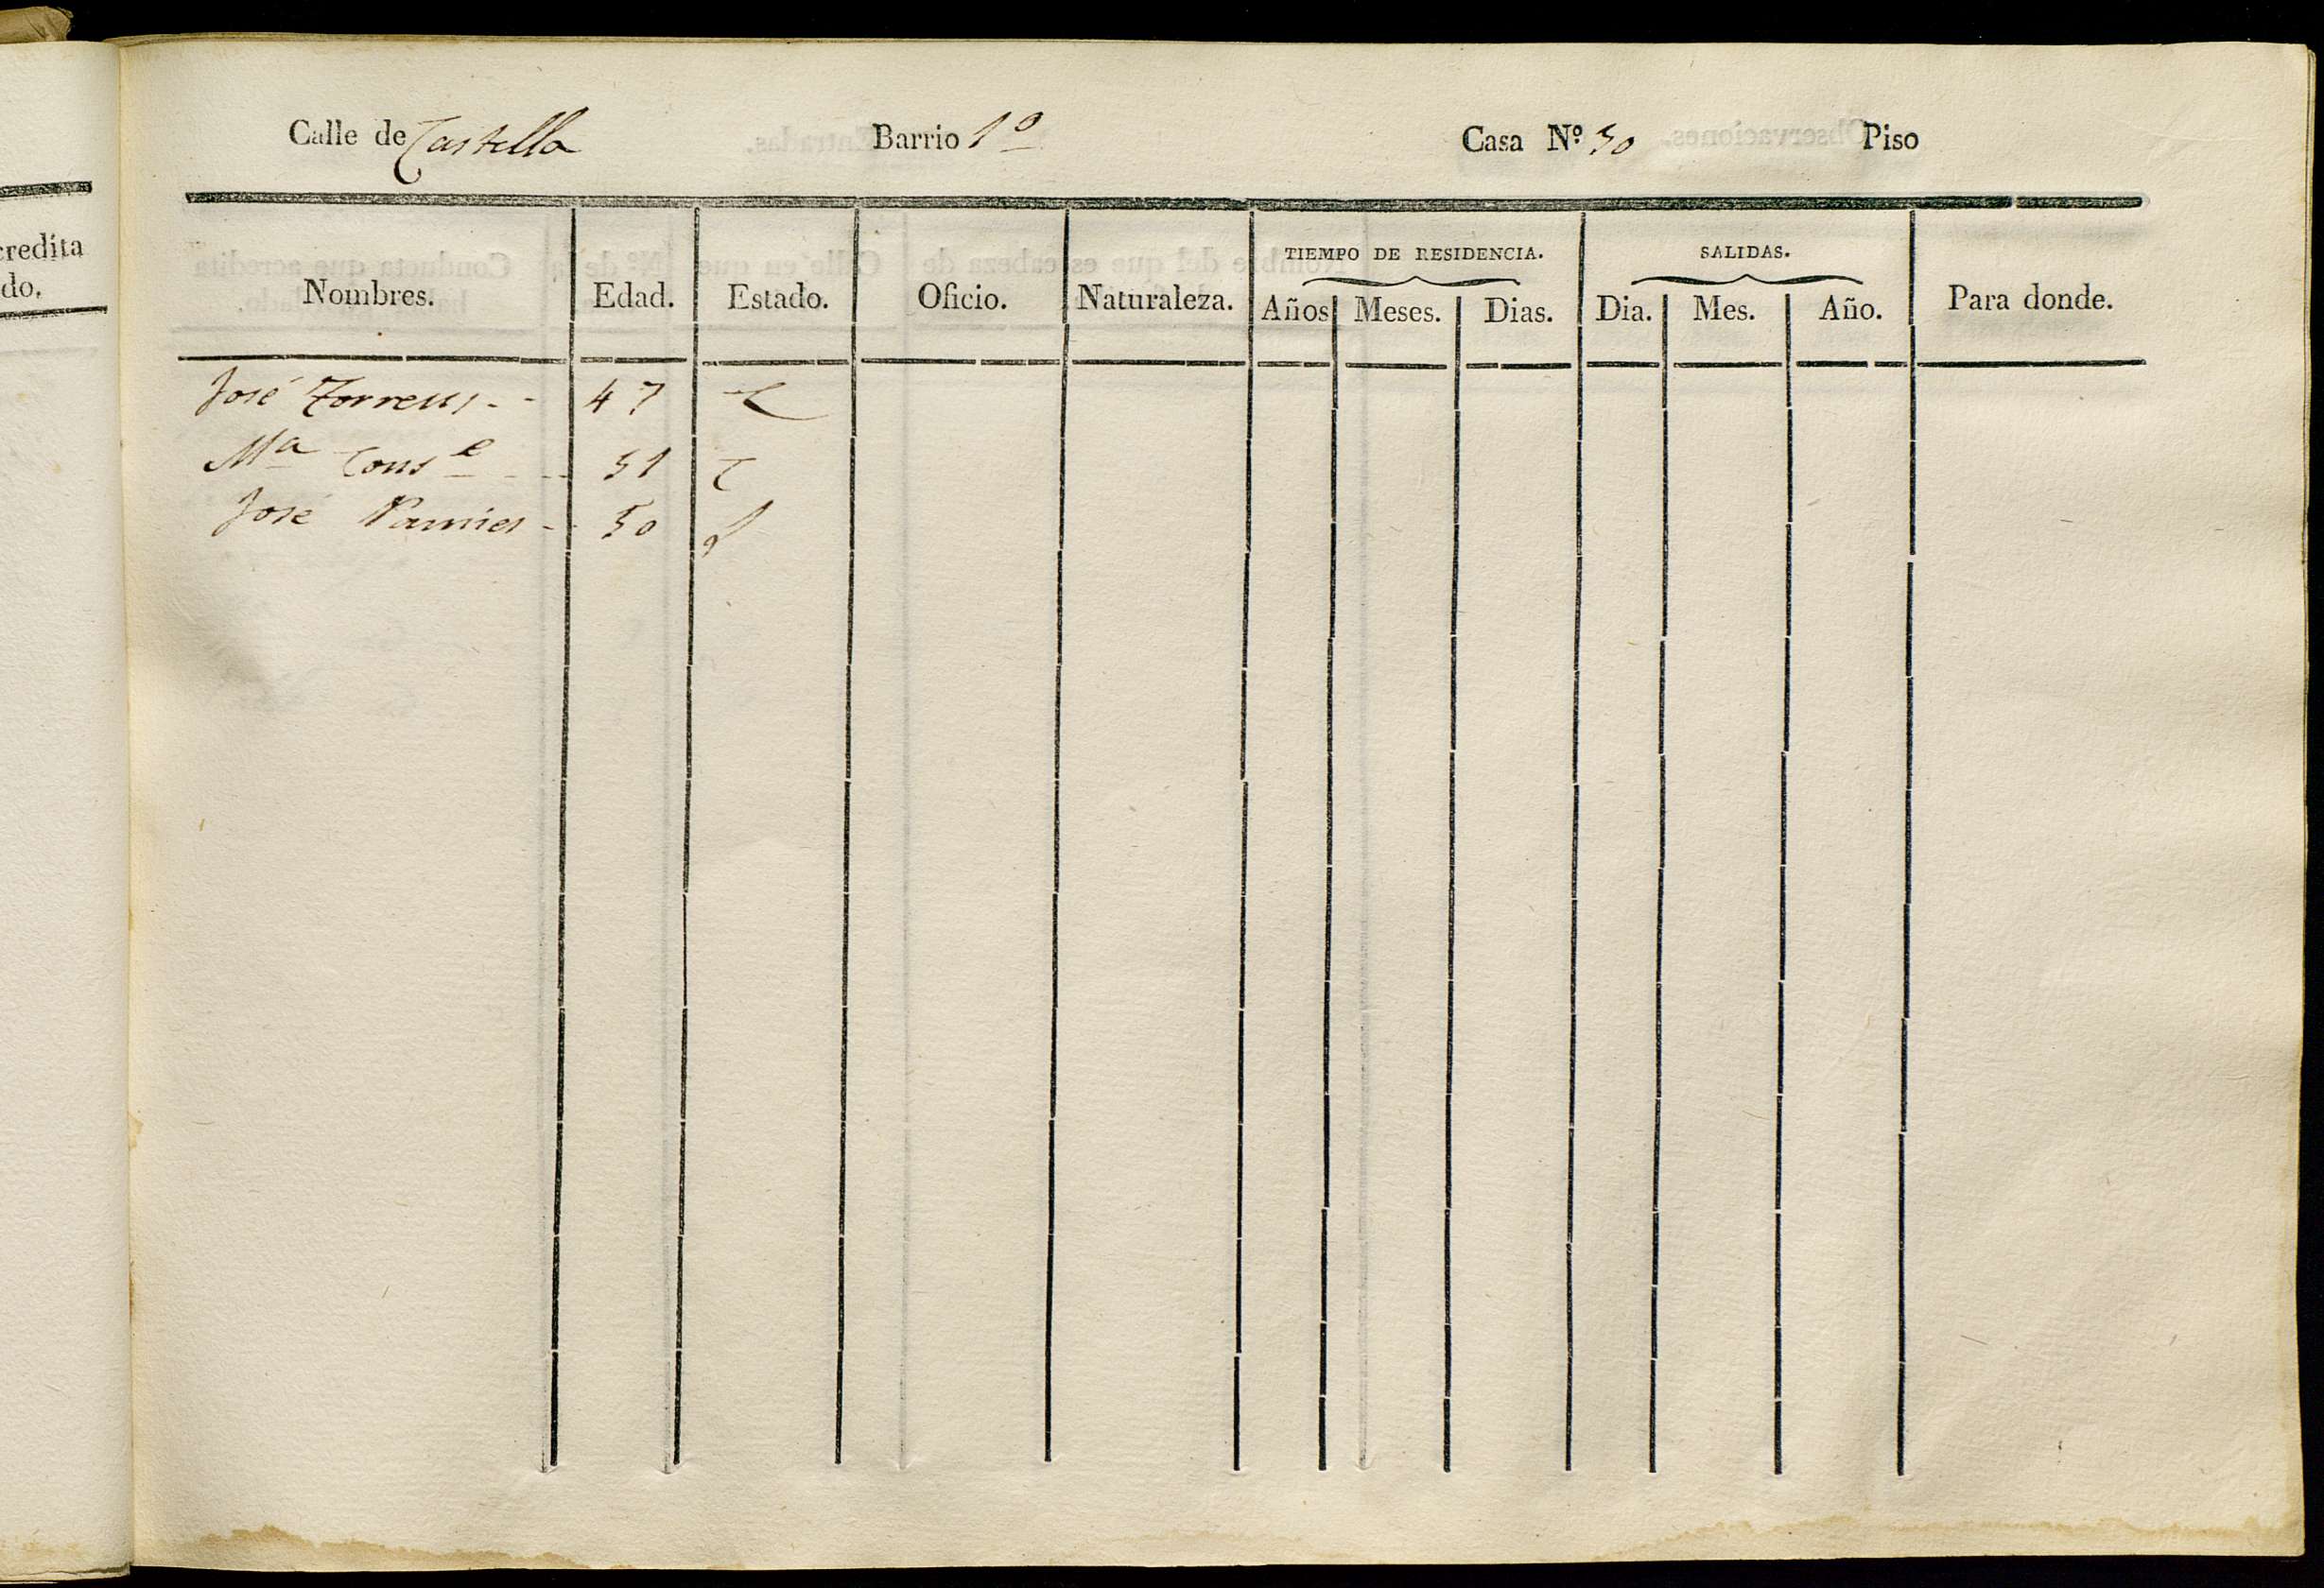 Calle de Castella Barrio 1º Casa Nº. 50 Piso
credita
do.
TIEMPO DE RESIDENCIA. SALIDAS.
Nombres. Edad. Estado. Oficio. Naturaleza. Años Meses. Dias. Dia. Mes. Año. Para donde.
José Torrens - - 47
Mª Conse - - 51 C
José Pamies - - 50